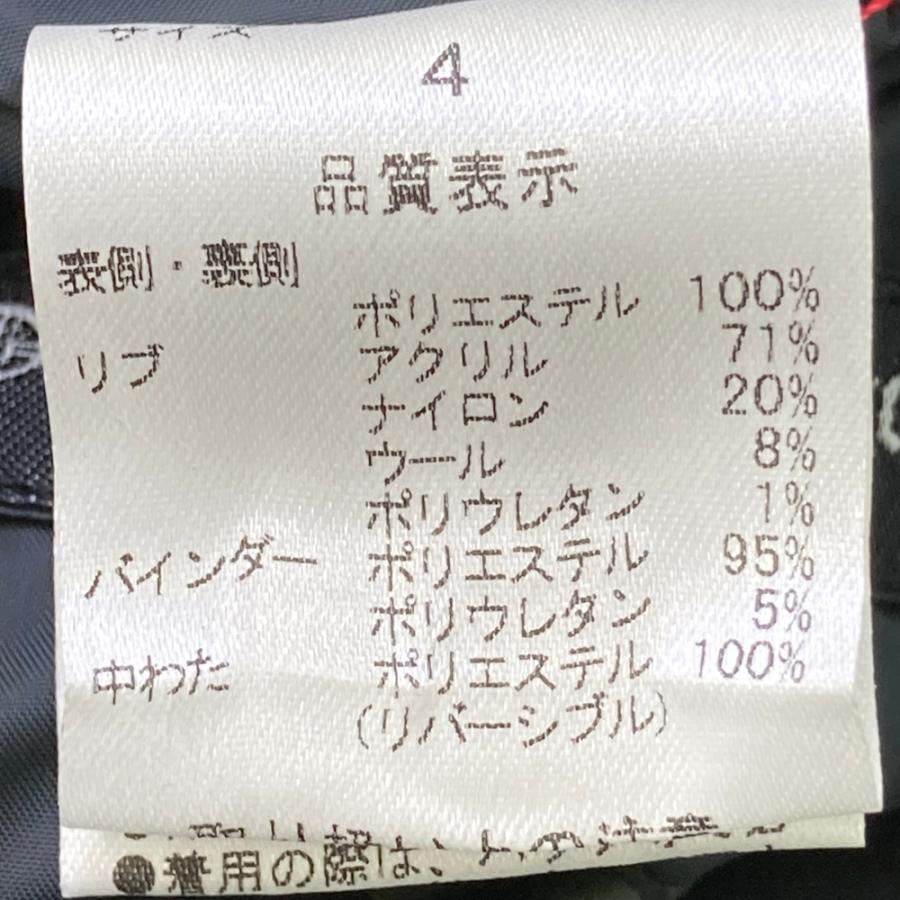 サイズ
4
品質表示
表側・裏側
ポリエステル 100%
リブ アクリル 71%
ナイロン 20%
ウール 8%
ポリウレタン 1%
バインダー ポリエステル 95%
ポリウレタン 5%
中わた ポリエステル 100%
(リバーシブル)
●着用の際は、